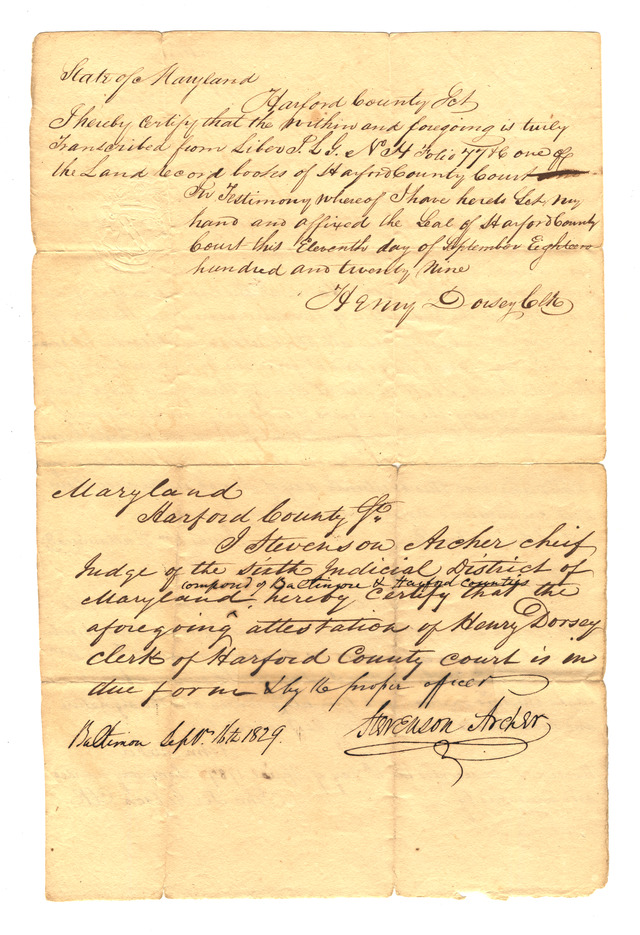 State of Maryland
Harford County Sct
I hereby certify that the within and foregoing is truly
Transcribed from Liber J. L. G. No. H Folio 77 one of
the Land record books of Harford County Court
In Testimony whereof I have hereto Set my
hand and affixed the Seal of Harford County
Court this Eleventh day of September Eighteen
hundred and twenty Nine
Henry Dorsey Clk
Maryland
Harford County Sct.
I Stevenson Archer cheif
Judge of the sixth Judicial District of
compound of Baltimore & Harford counties
Maryland, hereby certify that the
aforegoing attestation of Henry Dorsey
clerk of Harford County court is in
due form & by the proper officer
Baltimore Sepr. 16th 1829.
Stevenson Archer